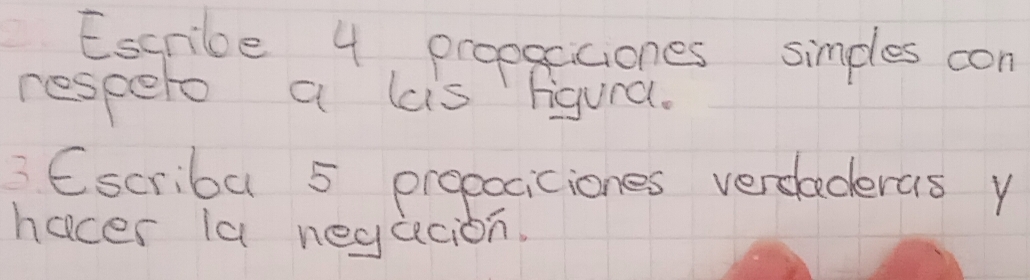 2. Escribe 4 propociciones simples con
respeto a las figura.
3. Escriba 5 propociciones verdaderas y
hacer la negación.